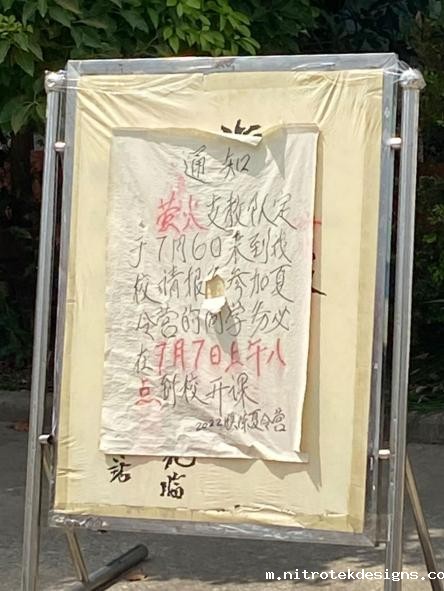 通知
萤火支教队定
于7月6日来到我
校,请报名参加夏
令营的同学务必
在7月7日上午八
点到校开课
2022 夏令营
临
m.nitrotekdesigns.co